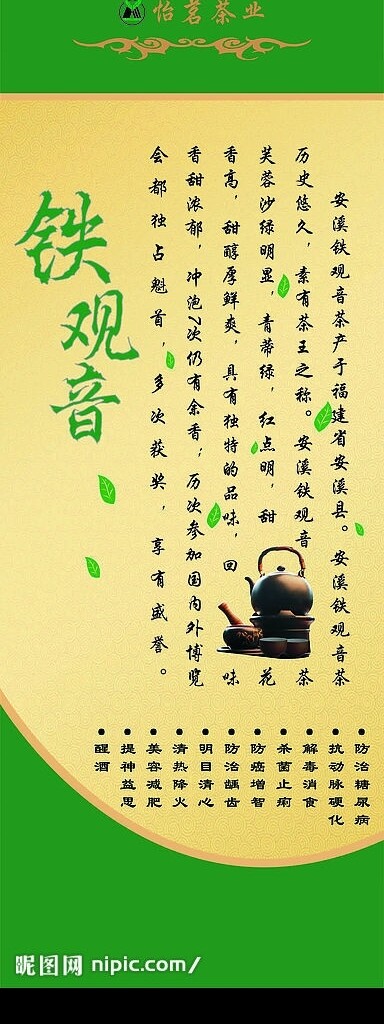 怡茗茶业
铁观音
安溪铁观音茶产于福建省安溪县。安溪铁观音茶
历史悠久，素有茶王之称。安溪铁观音茶
芙蓉沙绿明显，青蒂绿，红点明，甜花
香高，甜醇厚鲜爽，具有独特的品味，回味
香甜浓郁，冲泡7次仍有余香；历次参加国内外博览
会都独占魁首，多次获奖，享有盛誉。
● 防治糖尿病
● 抗动脉硬化
● 解毒消食
● 杀菌止痢
● 防癌增智
● 防治龋齿
● 明目清心
● 清热降火
● 美容减肥
● 提神益思
● 醒酒
昵图网 nipic.com/